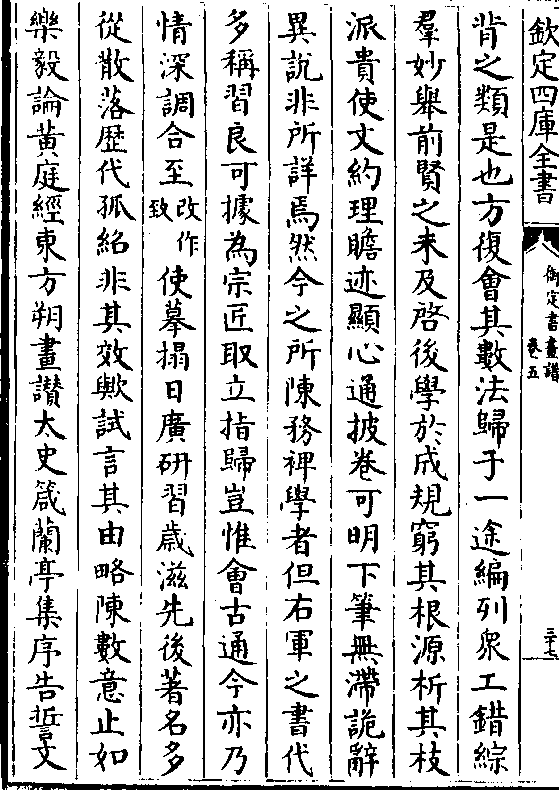 欽定四庫全書
御定書畫譜
卷五
三十七
背之類是也方復會其數法歸于一途編列衆工錯綜
羣妙舉前賢之未及啓後學於成規窮其根源析其枝
派貴使文約理贍迹顯心通披卷可明下筆無滯詭辭
異説非所詳焉然今之所陳務裨學者但右軍之書代
多稱習良可據為宗匠取立指歸豈惟會古通今亦乃
情深調合至改作致使摹搨日廣研習嵗滋先後著名多
從散落歴代孤紹非其效歟試言其由略陳數意止如
樂毅論黄庭經東方朔畫讚太史箴蘭亭集序告誓文